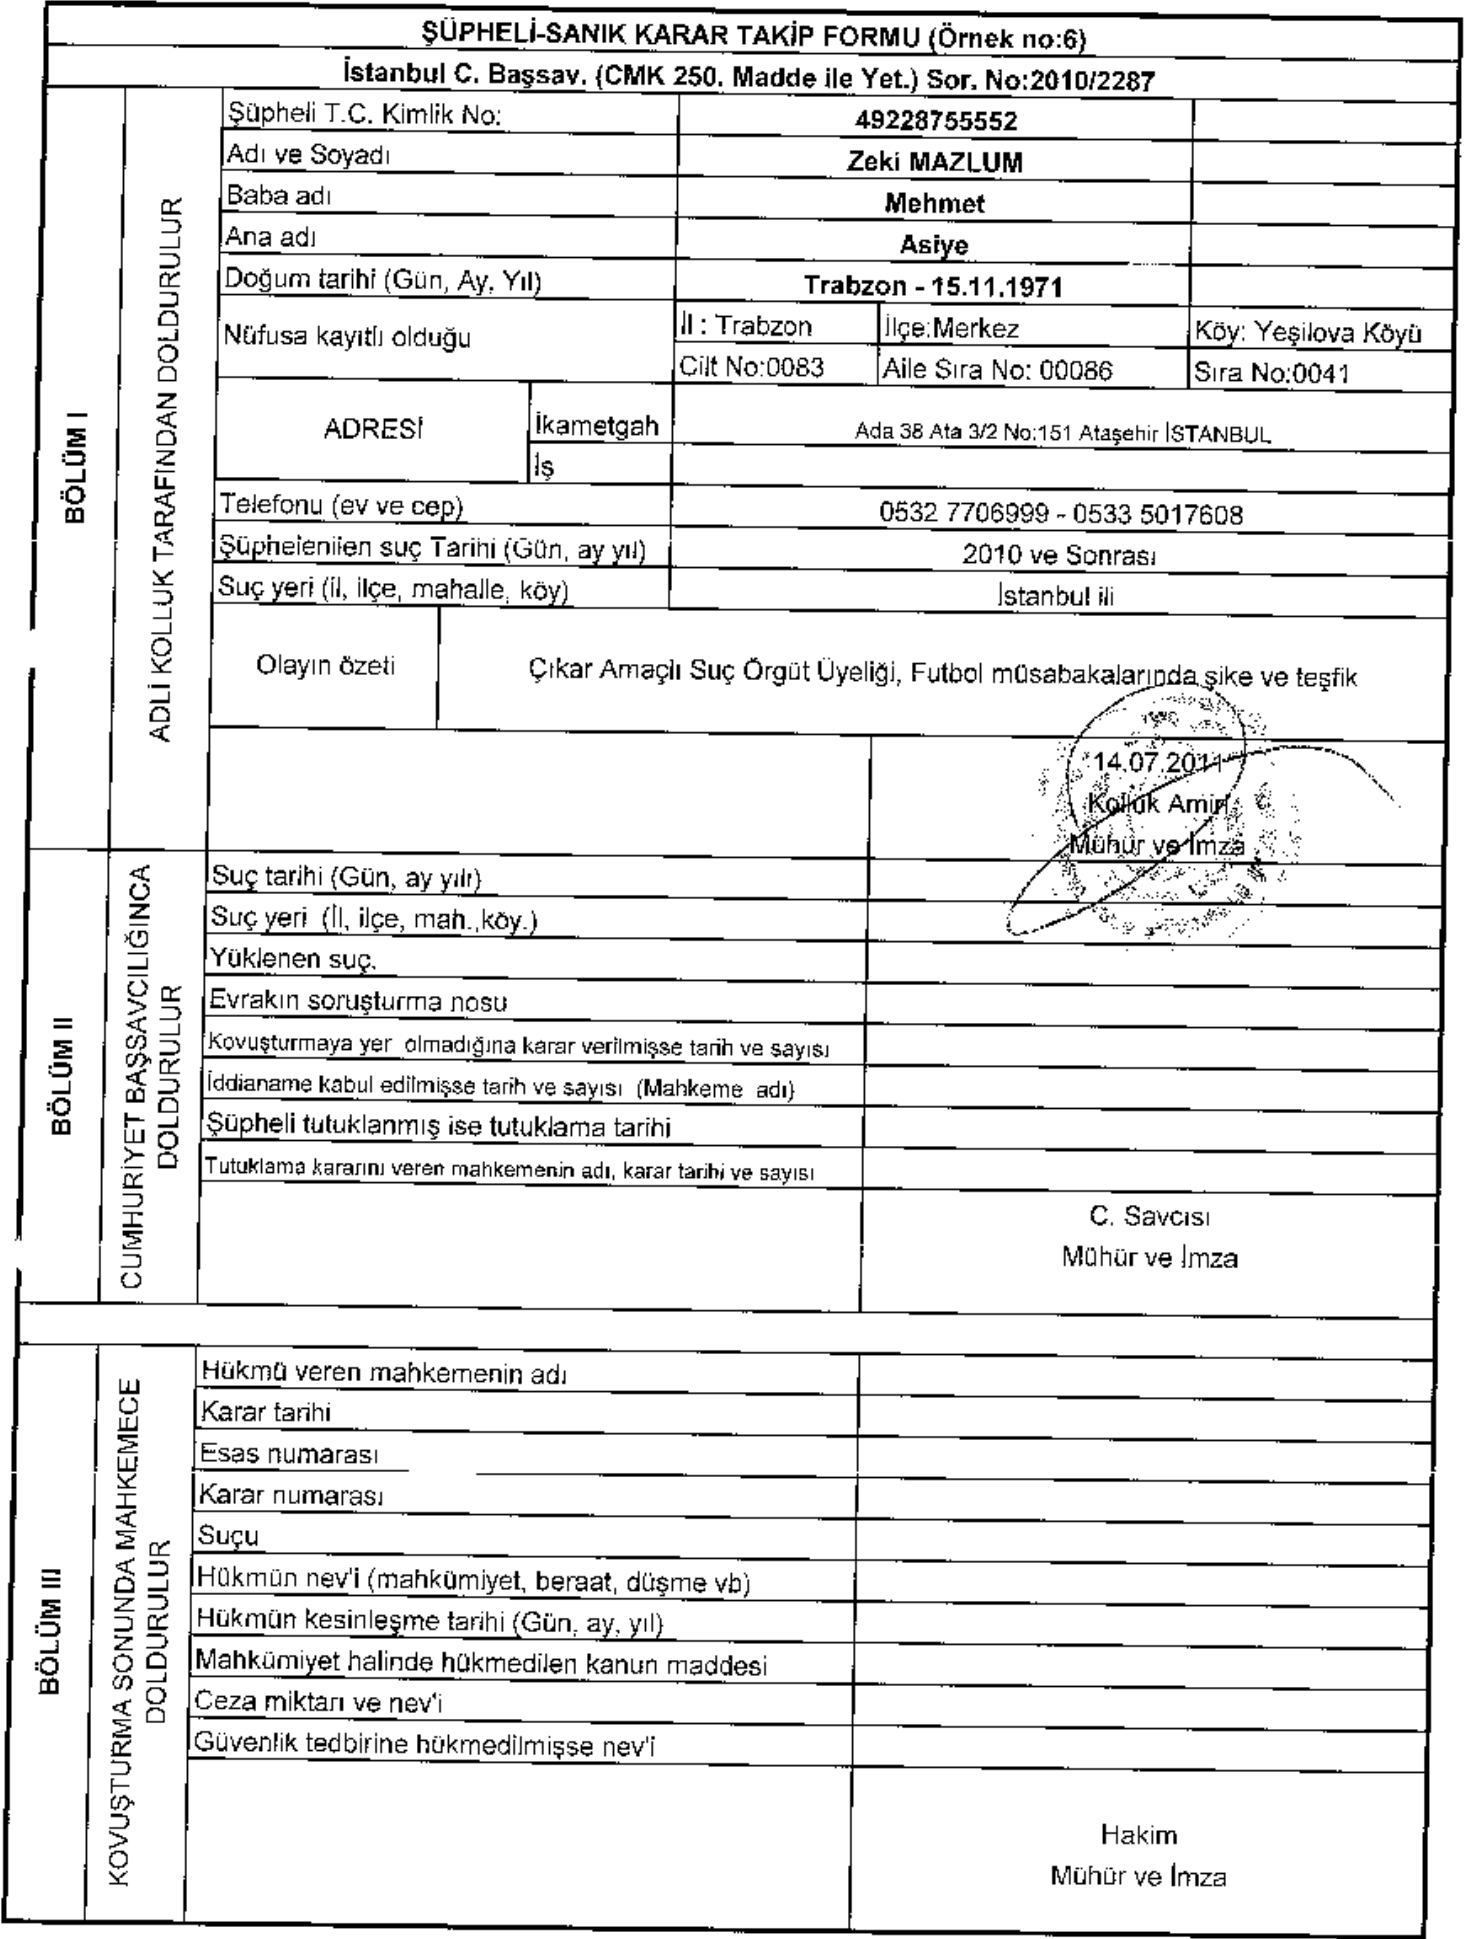 ŞÜPHELİ-SANIK KARAR TAKİP FORMU (Örnek no:6)
İstanbul C. Başsav. (CMK 250. Madde ile Yet.) Sor. No:2010/2287
BÖLÜM I
ADLİ KOLLUK TARAFINDAN DOLDURULUR
Şüpheli T.C. Kimlik No: 49228755552
Adı ve Soyadı Zeki MAZLUM
Baba adı Mehmet
Ana adı Asiye
Doğum tarihi (Gün, Ay, Yıl) Trabzon - 15.11.1971
Nüfusa kayıtlı olduğu
İl : Trabzon İlçe:Merkez Köy: Yeşilova Köyü
Cilt No:0083 Aile Sıra No: 00086 Sıra No:0041
ADRESİ
İkametgah Ada 38 Ata 3/2 No:151 Ataşehir İSTANBUL
İş
Telefonu (ev ve cep) 0532 7706999 - 0533 5017608
Şüphelenilen suç Tarihi (Gün, ay yıl) 2010 ve Sonrası
Suç yeri (il, ilçe, mahalle, köy) İstanbul ili
Olayın özeti Çıkar Amaçlı Suç Örgüt Üyeliği, Futbol müsabakalarında şike ve teşfik
14.07.2011
Kolluk Amiri
Mühür ve İmza
BÖLÜM II
CUMHURİYET BAŞSAVCILIĞINCA
DOLDURULUR
Suç tarihi (Gün, ay yılı)
Suç yeri (İl, ilçe, mah.,köy.)
Yüklenen suç.
Evrakın soruşturma nosu
Kovuşturmaya yer olmadığına karar verilmişse tarih ve sayısı
İddianame kabul edilmişse tarih ve sayısı (Mahkeme adı)
Şüpheli tutuklanmış ise tutuklama tarihi
Tutuklama kararını veren mahkemenin adı, karar tarihi ve sayısı
C. Savcısı
Mühür ve İmza
BÖLÜM III
KOVUŞTURMA SONUNDA MAHKEMECE
DOLDURULUR
Hükmü veren mahkemenin adı
Karar tarihi
Esas numarası
Karar numarası
Suçu
Hükmün nev'i (mahkümiyet, beraat, düşme vb)
Hükmün kesinleşme tarihi (Gün, ay, yıl)
Mahkümiyet halinde hükmedilen kanun maddesi
Ceza miktarı ve nev'i
Güvenlik tedbirine hükmedilmişse nev'i
Hakim
Mühür ve İmza